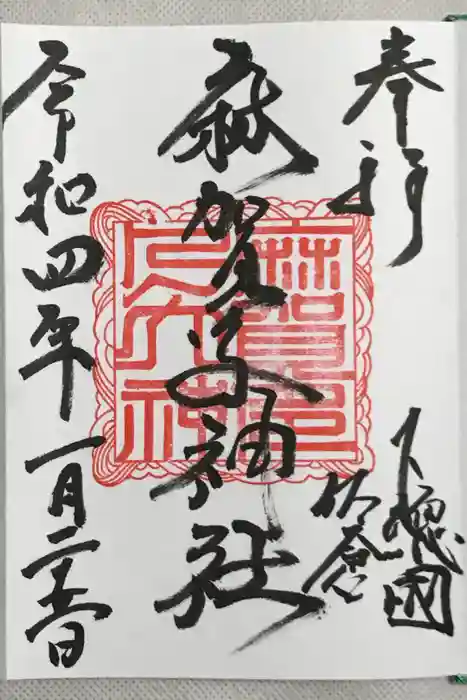 奉拝
下総國
佐倉
麻賀多神社
麻賀多
大神
令和四年一月二十日